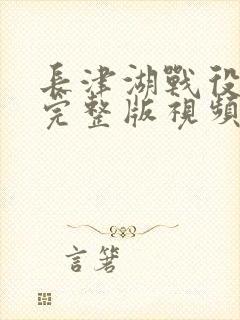 長津湖戰役
完整版視頻
言箸